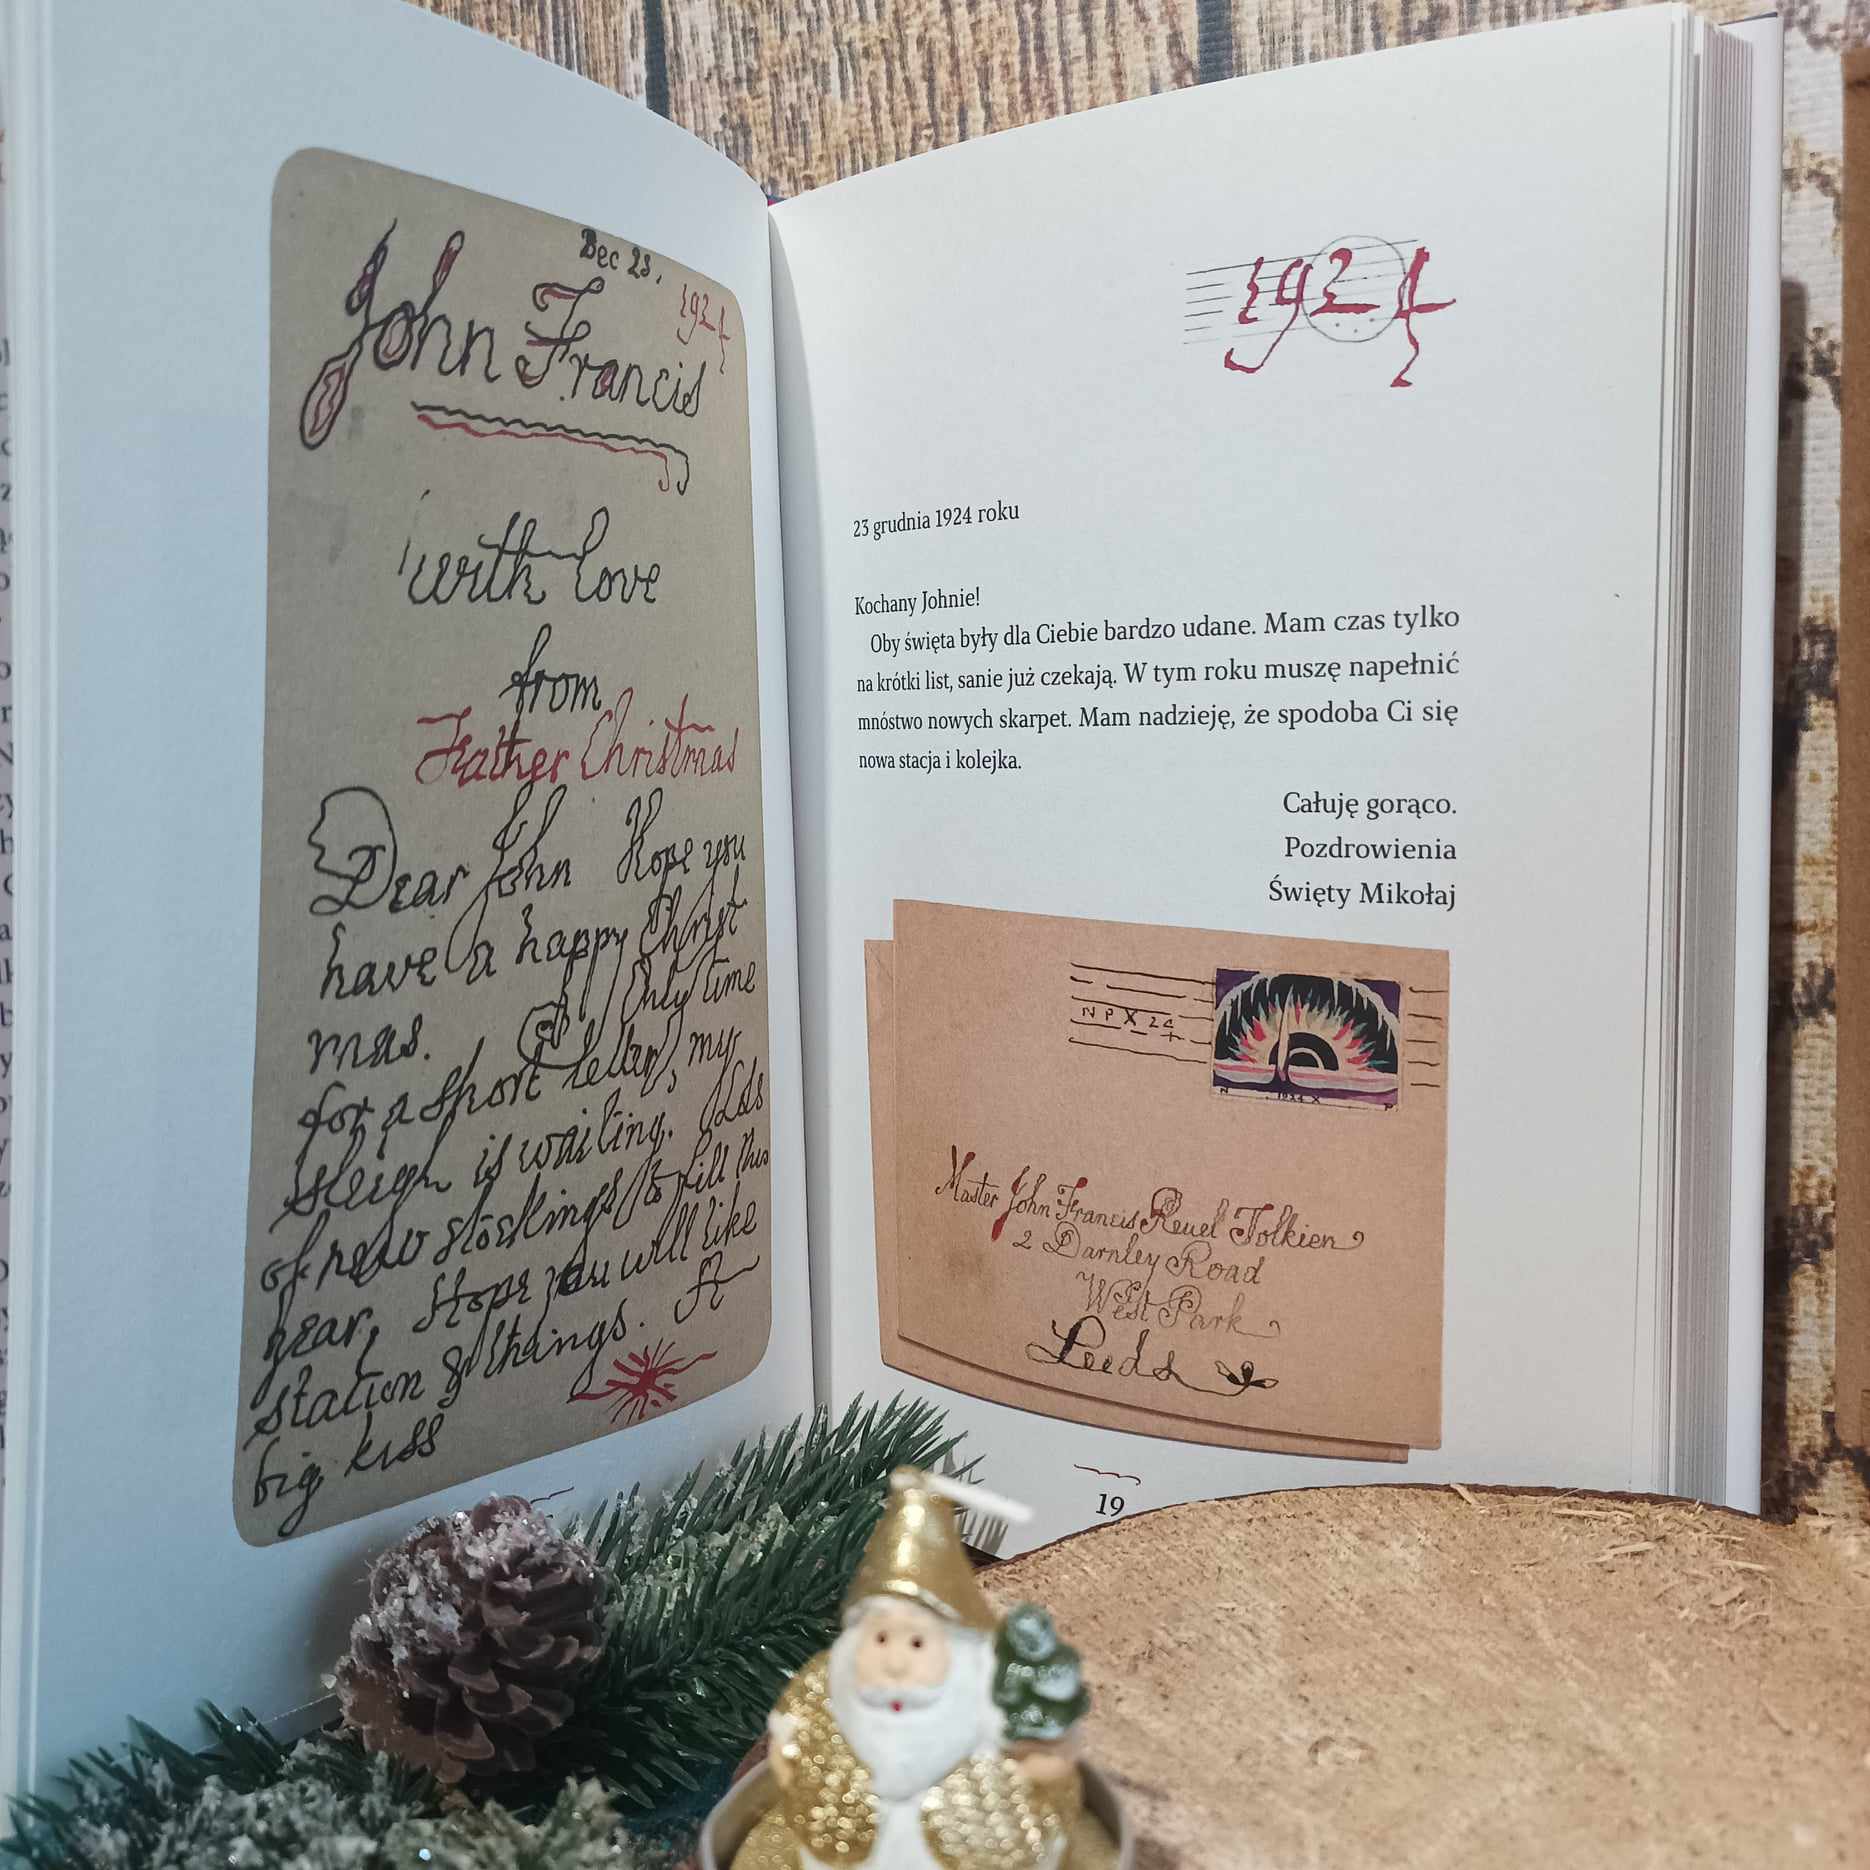 Dec 23,
1924
John Francis
with love
from
Father Christmas
Dear John Hope you
have a happy Christ
mas. Only time
for a short letter, my
sleigh is waiting. Lots
of new stockings to fill this
year, Hope you will like
station & things. A
big kiss
1924
23 grudnia 1924 roku
Kochany Johnie!
Oby święta były dla Ciebie bardzo udane. Mam czas tylko
na krótki list, sanie już czekają. W tym roku muszę napełnić
mnóstwo nowych skarpet. Mam nadzieję, że spodoba Ci się
nowa stacja i kolejka.
Całuję gorąco.
Pozdrowienia
Święty Mikołaj
N P X 24
N 1924 X P
Master John Francis Reuel Tolkien
2 Darnley Road
West Park
Leeds
19